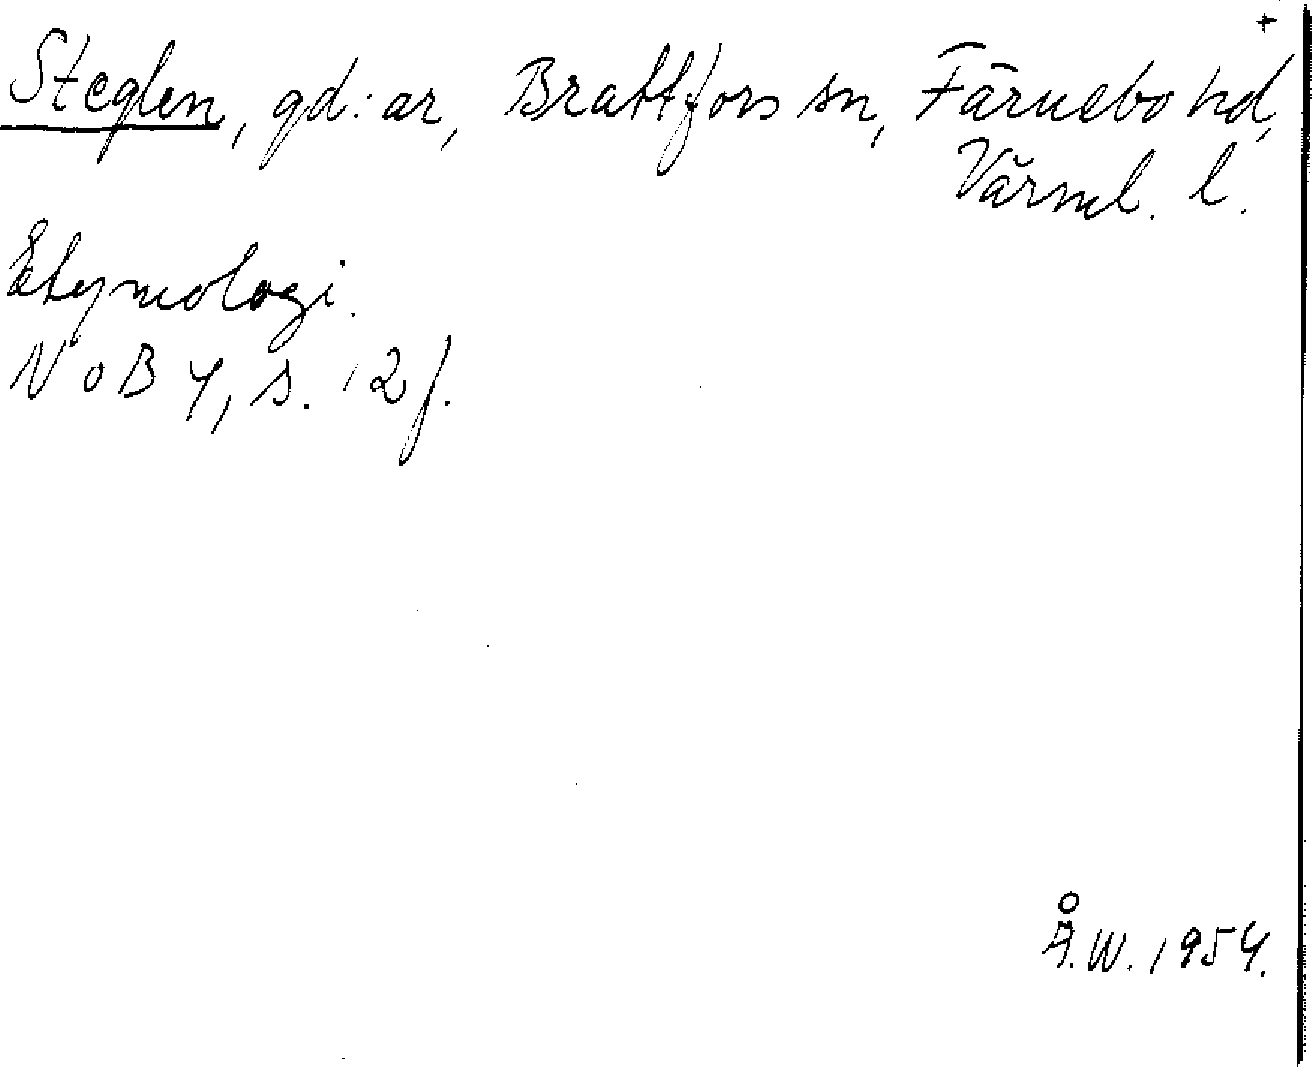 +
Steglen, gd:ar, Brattfors sn, Färnebo hd,
Värml. l.
Etymologi.
NoB 4, s. 12 f.
Å.W. 1954.